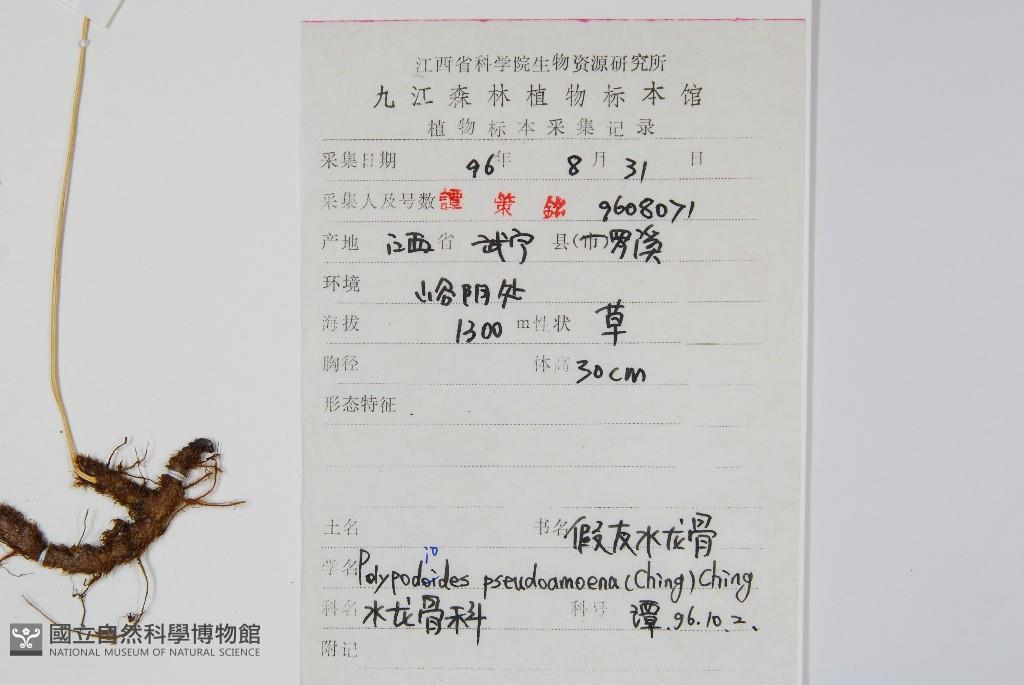 江西省科学院生物资源研究所
九江森林植物标本馆
植物标本采集记录
采集日期 96年 8月 31 日
采集人及号数 譚 策 銘 9608071
产地 江西省 武宁 县(市) 罗溪
环境 山谷阴处
海拔 1300 m 性状 草
胸径 体高 30cm
形态特征
土名 书名 假友水龙骨
io
学名 Polypodoides pseudoamoena (Ching) Ching
科名 水龙骨科 科号 譚.96.10.2.
附记
國立自然科學博物館
NATIONAL MUSEUM OF NATURAL SCIENCE